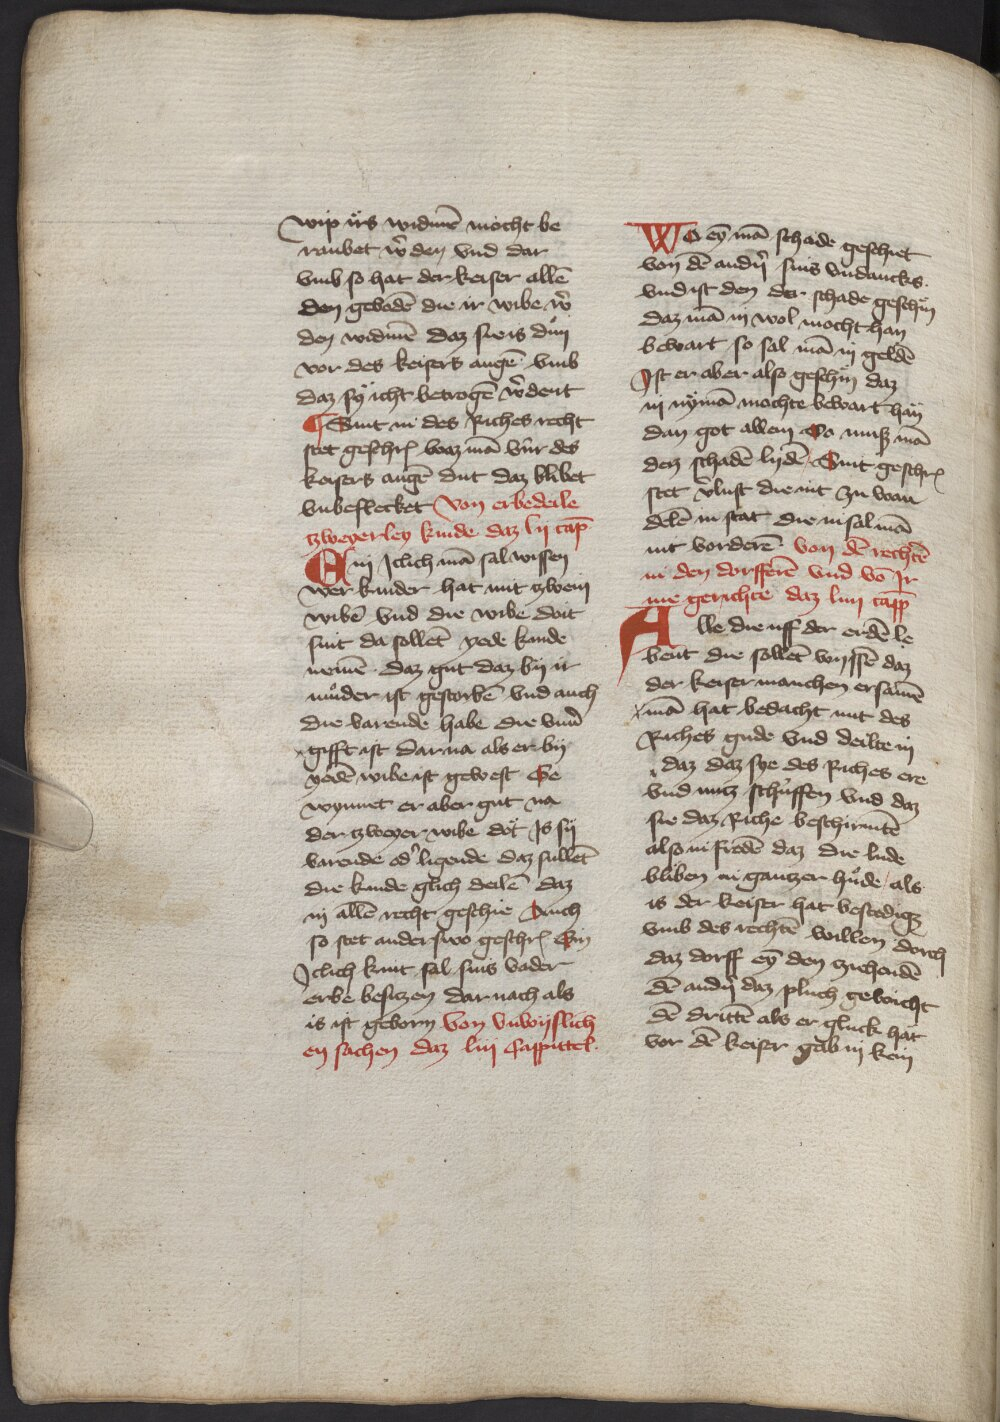 wip irs widmē mocht be
raubet w̄den vnd dar
vmb so hat der keiser allē
den gebodē die ir wibe w̄
den widmē daz sie is dūn
vor des keisers augē vmb
daz sy icht betrogē w̄dent
Sint in des Riches recht
stet geschr̄ waz mā vur des
keisers augē dut daz blibet
vnbeflecket Von erbedeile
tzweyerley kinde daz lij cap̄
Ein Jclich mā sal wissen
wer kinder hat mit tzwein
wibē vnd die wibe doit
sint da solletē yede kinde
nemē daz gut daz by ir
muder ist gestorbē vnd auch
die varende habe die vmu̇
gifft ist dar na als er by
yedē wibe ist gewest Ge
wynnet er aber gut na
der tzweyer wibe dot Is sy
varende od' ligende daz sullet
die kinde glich deilē daz
in allē recht geschie Auch
so stet anderswo geschr̄ Ein
Jclich kint sal sins vader
erbe besitzen dar nach als
is ist geborn Von vnwyslich
en sachen daz liij Cappittel
Wo ey mā schade geschiet
von dē andn̄ sins vndancks
vnd ist den der schade geschin̄
daz mā in wol mocht han
bewart so sal mā in geldē
Ist er aber also geschin̄ daz
in nymā mochte bewart han
dan got allein So muß mā
den schadē lydē Sint geschr̄
stet v̄lust die nit zu wan
delē in stat die in sal mā
nit vorderē Von dē rechtē
in den dorfferē vnd vō Ir
me gerichte daz liiij capp̄
Alle die uff der erdē le
bent die solletē wyssē daz
der keiser manchen ersamē
mā hat bedacht mit des
Riches gude vnd deilte in
daz daz sye des Riches ere
vnd nutz schuffen vnd daz
sie daz Riche beschirmtē
also in fredē daz die lude
bliben in gantzer hude als
is der keiser hat bestedigt
vmb des rechtē willen dorch
daz dorff ey den ziehendē
dē andn̄ daz pluch gewicht
dē drittē als er gluck hat
vor dē keiser gab in kein